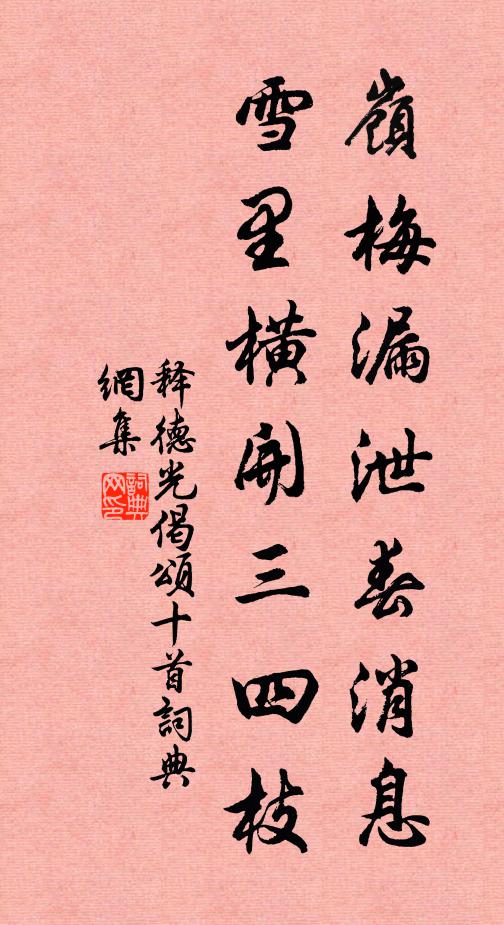 嶺梅漏泄春消息
雪里橫開三四枝
释德光偈頌十首詞典
網集
詞典
网印